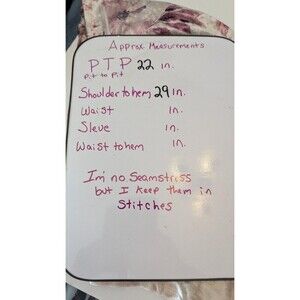 Approx Measurements
PTP 22 in.
Pit to Pit
Shoulder to hem 29 in.
Waist in.
Sleve in.
Waist to hem in.
I'm no Seamstriss
but I Keep them in
Stitches